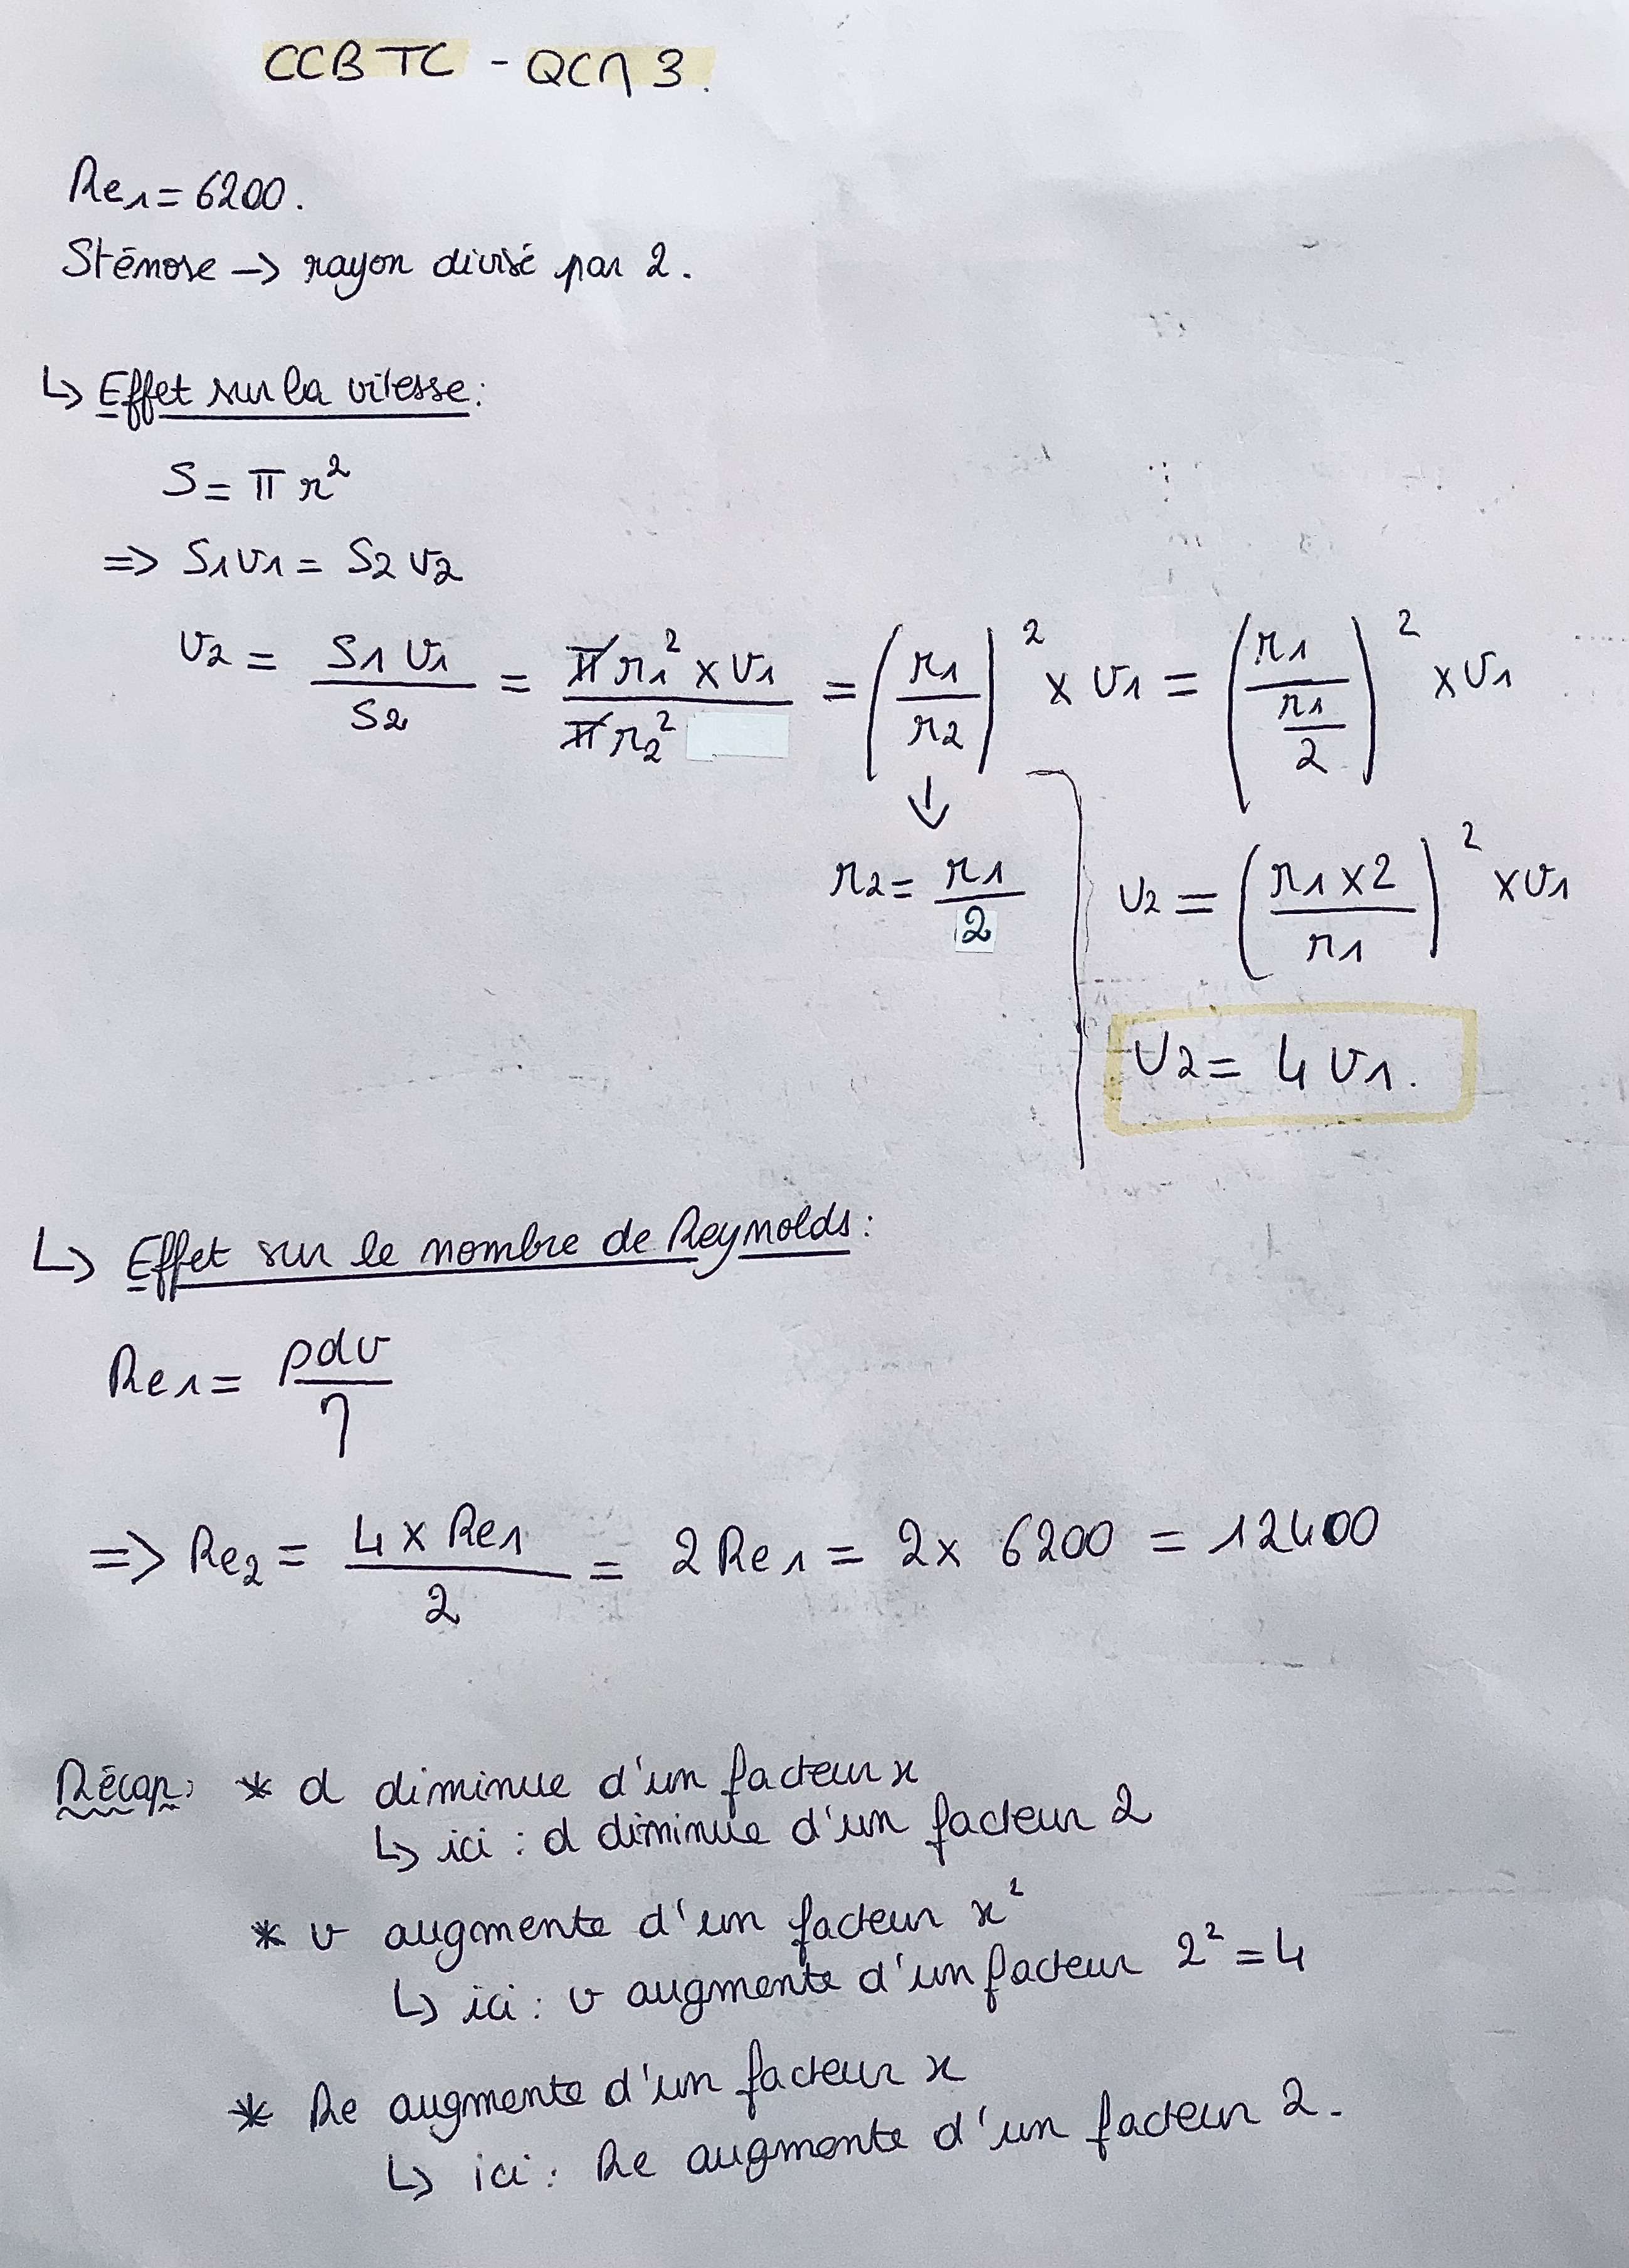 CCB TC - QCM 3.
Re1 = 6200.
Sténose -> rayon divisé par 2.
↳ Effet sur la vitesse :
S = π r²
=> S1 v1 = S2 v2
v2 = S1 v1 / S2 = π r1² x v1 / π r2² = (r1 / r2)² x v1 = (r1 / (r1 / 2))² x v1
↓
r2 = r1 / 2
v2 = (r1 x 2 / r1)² x v1
v2 = 4 v1.
↳ Effet sur le nombre de Reynolds :
Re1 = ρdv / η
=> Re2 = 4 x Re1 / 2 = 2 Re1 = 2 x 6200 = 12400
Récap : * d diminue d'un facteur x
↳ ici : d diminue d'un facteur 2
* v augmente d'un facteur x²
↳ ici : v augmente d'un facteur 2² = 4
* Re augmente d'un facteur x
↳ ici : Re augmente d'un facteur 2.